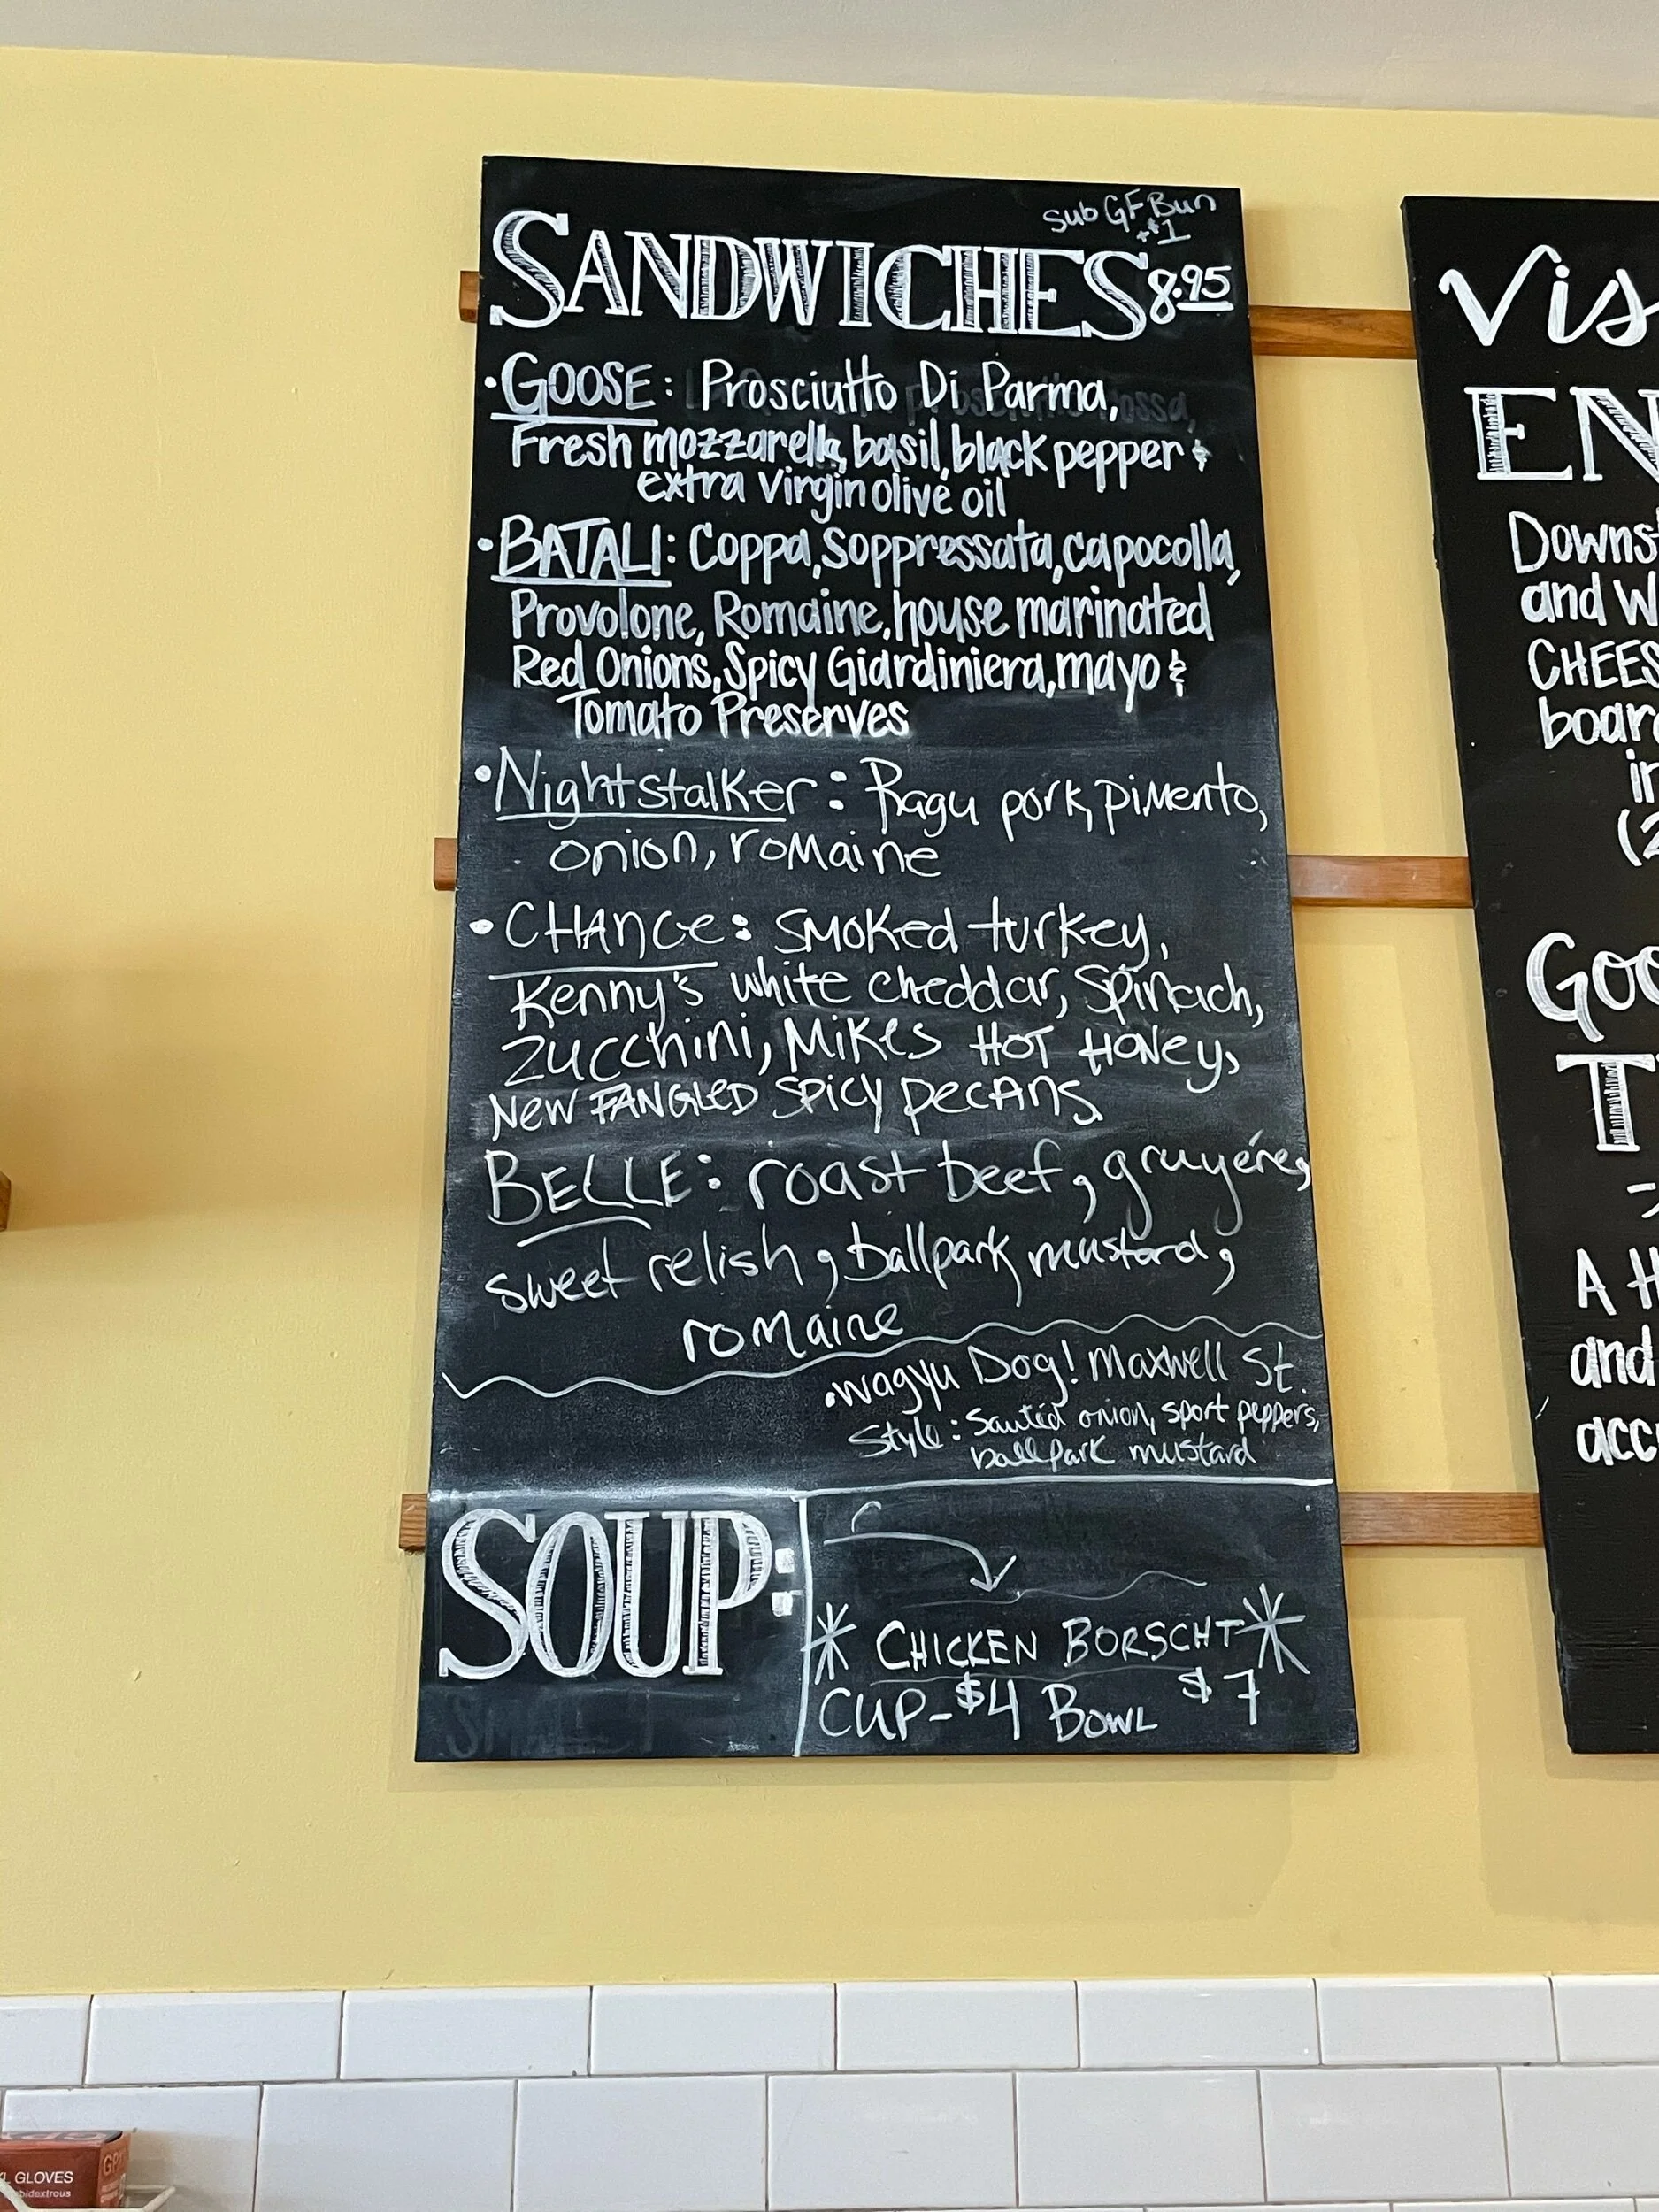 sub GF Bun
+$1
SANDWICHES 8.95
• GOOSE: Prosciutto Di Parma,
Fresh mozzarella, basil, black pepper &
extra virgin olive oil
• BATALI: Coppa, Soppressata, capocolla,
Provolone, Romaine, house marinated
Red Onions, Spicy Giardiniera, mayo &
Tomato Preserves
• Nightstalker: Ragu pork, pimento,
onion, romaine
• CHANCE: smoked turkey,
Kenny's white cheddar, spinach,
zucchini, Mikes HOT HONEY,
NEW FANGLED SPICY pecans
BELLE: roast beef, gruyére,
sweet relish, ballpark mustard,
romaine
• wagyu Dog! Maxwell St.
Style: Sautéd onion, sport peppers,
ballpark mustard
SOUP:
* CHICKEN BORSCHT *
CUP- $4 BOWL $7
Vis
EN
Downs
and W
CHEES
board
in
(2
Goo
T
A H
and
acc
L GLOVES
bidextrous
GP